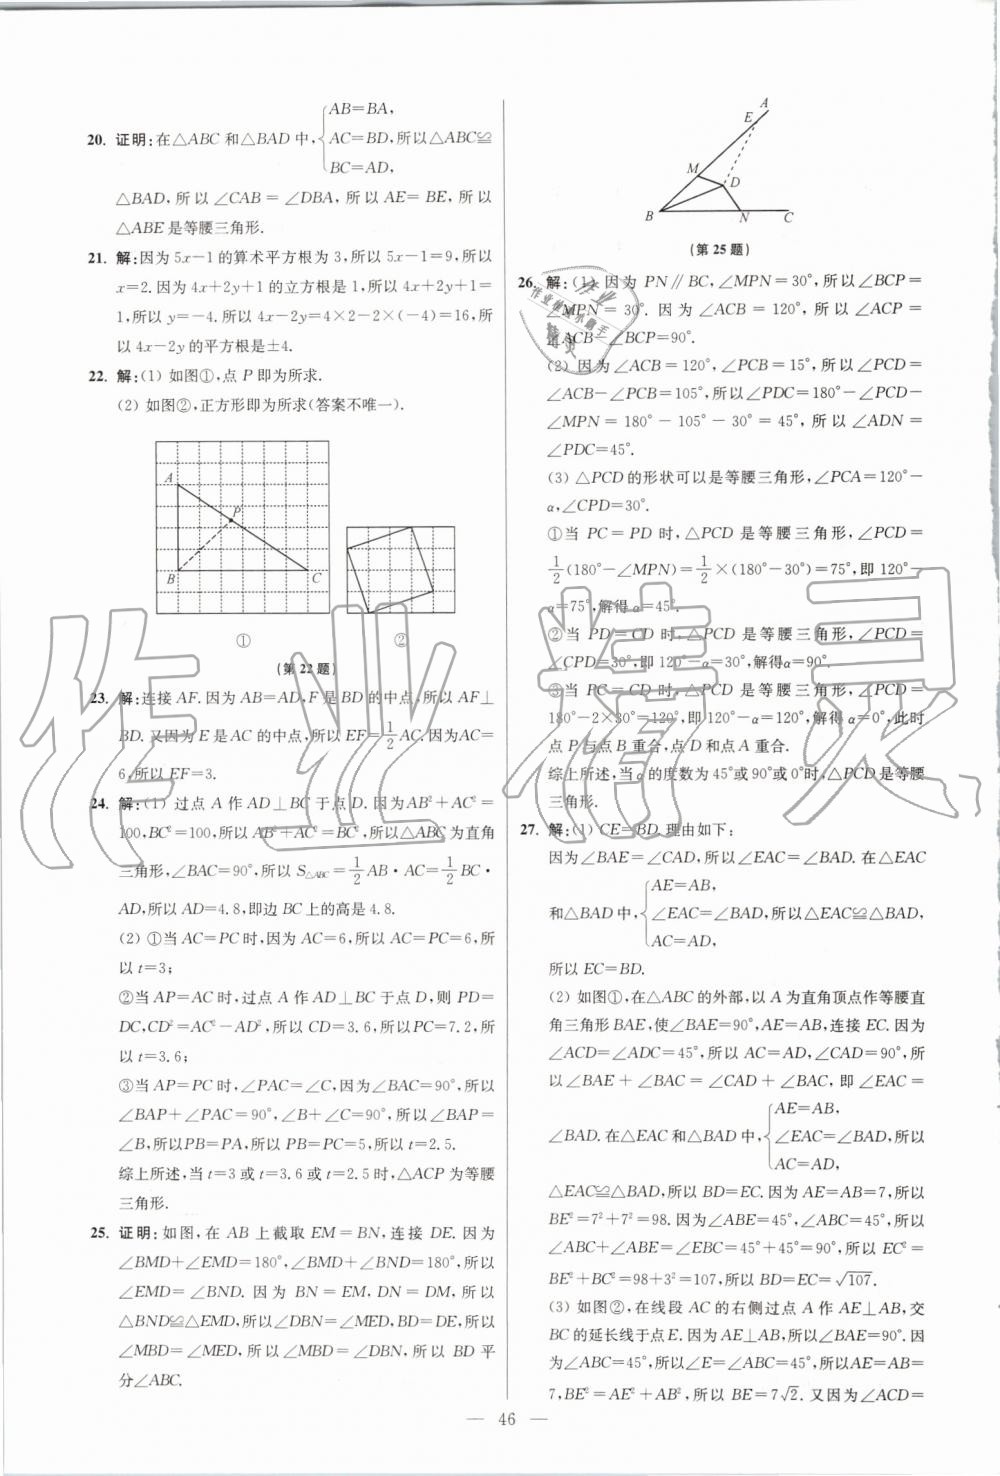 AB=BA,
20. 证明:在△ABC 和△BAD 中,{AC=BD,所以△ABC≌
BC=AD,
△BAD,所以∠CAB=∠DBA,所以 AE=BE,所以
△ABE 是等腰三角形.
21. 解:因为 5x−1 的算术平方根为 3,所以 5x−1=9,所以
x=2.因为 4x+2y+1 的立方根是 1,所以 4x+2y+1=
1,所以 y=−4.所以 4x−2y=4×2−2×(−4)=16,所
以 4x−2y 的平方根是±4.
22. 解:(1) 如图①,点 P 即为所求.
(2) 如图②,正方形即为所求(答案不唯一).
A
P
B
C
① ②
(第 22 题)
23. 解:连接 AF.因为 AB=AD,F 是 BD 的中点,所以 AF⊥
BD.又因为 E 是 AC 的中点,所以 EF=1/2 AC.因为AC=
6,所以 EF=3.
24. 解:(1) 过点 A 作 AD⊥BC 于点 D.因为AB²+AC²=
100,BC²=100,所以 AB²+AC²=BC²,所以△ABC 为直角
三角形,∠BAC=90°,所以 S△ABC=1/2 AB·AC=1/2 BC·
AD,所以 AD=4.8,即边 BC 上的高是 4.8.
(2) ①当 AC=PC 时,因为 AC=6,所以 AC=PC=6,所
以 t=3;
②当 AP=AC 时,过点 A 作 AD⊥BC 于点 D,则 PD=
DC,CD²=AC²−AD²,所以 CD=3.6,所以PC=7.2,所
以 t=3.6;
③当 AP=PC 时,∠PAC=∠C,因为∠BAC=90°,所以
∠BAP+∠PAC=90°,∠B+∠C=90°,所以∠BAP=
∠B,所以PB=PA,所以 PB=PC=5,所以 t=2.5.
综上所述,当 t=3 或 t=3.6 或 t=2.5 时,△ACP 为等腰
三角形.
25. 证明:如图,在 AB 上截取 EM=BN,连接 DE.因为
∠BMD+∠EMD=180°,∠BMD+∠BND=180°,所以
∠EMD=∠BND.因为 BN=EM,DN=DM,所以
△BND≌△EMD,所以∠DBN=∠MED,BD=DE,所以
∠MBD=∠MED,所以∠MBD=∠DBN,所以 BD 平
分∠ABC.
A
E
M
D
B
N
C
(第 25 题)
26. 解:(1) 因为 PN∥BC,∠MPN=30°,所以∠BCP=
∠MPN=30°.因为∠ACB=120°,所以∠ACP=
∠ACB−∠BCP=90°.
(2) 因为∠ACB=120°,∠PCB=15°,所以∠PCD=
∠ACB−∠PCB=105°,所以∠PDC=180°−∠PCD−
∠MPN=180°−105°−30°=45°,所以∠ADN=
∠PDC=45°.
(3) △PCD 的形状可以是等腰三角形,∠PCA=120°−
α,∠CPD=30°.
①当 PC=PD 时,△PCD 是等腰三角形,∠PCD=
1/2(180°−∠MPN)=1/2×(180°−30°)=75°,即 120°−
α=75°,解得 α=45°.
②当 PD=CD 时,△PCD 是等腰三角形,∠PCD=
∠CPD=30°,即 120°−α=30°,解得α=90°.
③当 PC=CD 时,△PCD 是等腰三角形,∠PCD=
180°−2×30°=120°,即120°−α=120°,解得 α=0°,此时
点 P 与点 B 重合,点 D 和点 A 重合.
综上所述,当 α 的度数为 45°或 90°或 0°时,△PCD 是等腰
三角形.
27. 解:(1) CE=BD.理由如下:
因为∠BAE=∠CAD,所以∠EAC=∠BAD.在△EAC
AE=AB,
和△BAD 中,{∠EAC=∠BAD,所以△EAC≌△BAD,
AC=AD,
所以 EC=BD.
(2) 如图①,在△ABC 的外部,以 A 为直角顶点作等腰直
角三角形 BAE,使∠BAE=90°,AE=AB,连接 EC.因为
∠ACD=∠ADC=45°,所以 AC=AD,∠CAD=90°,所
以∠BAE+∠BAC=∠CAD+∠BAC,即∠EAC=
AE=AB,
∠BAD.在△EAC 和△BAD 中,{∠EAC=∠BAD,所以
AC=AD,
△EAC≌△BAD,所以 BD=EC.因为 AE=AB=7,所以
BE²=7²+7²=98.因为∠ABE=45°,∠ABC=45°,所以
∠ABC+∠ABE=∠EBC=45°+45°=90°,所以 EC²=
BE²+BC²=98+3²=107,所以 BD=EC=√107.
(3) 如图②,在线段 AC 的右侧过点 A 作 AE⊥AB,交
BC 的延长线于点 E.因为 AE⊥AB,所以∠BAE=90°.因
为∠ABC=45°,所以∠E=∠ABC=45°,所以AE=AB=
7,BE²=AE²+AB²,所以 BE=7√2.又因为∠ACD=
— 46 —
作业精灵